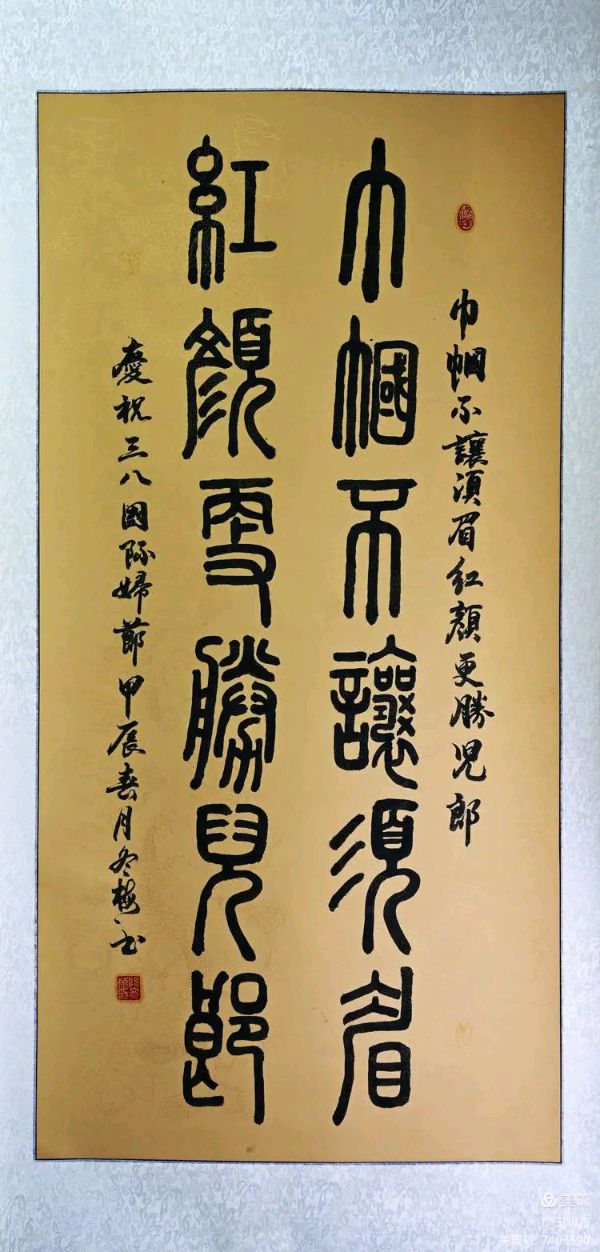 巾帼不讓須眉紅顔更勝兒郎
巾幗不讓須眉
紅顔更勝兒郎
慶祝三八國際婦節甲辰春月冬梅書
美篇